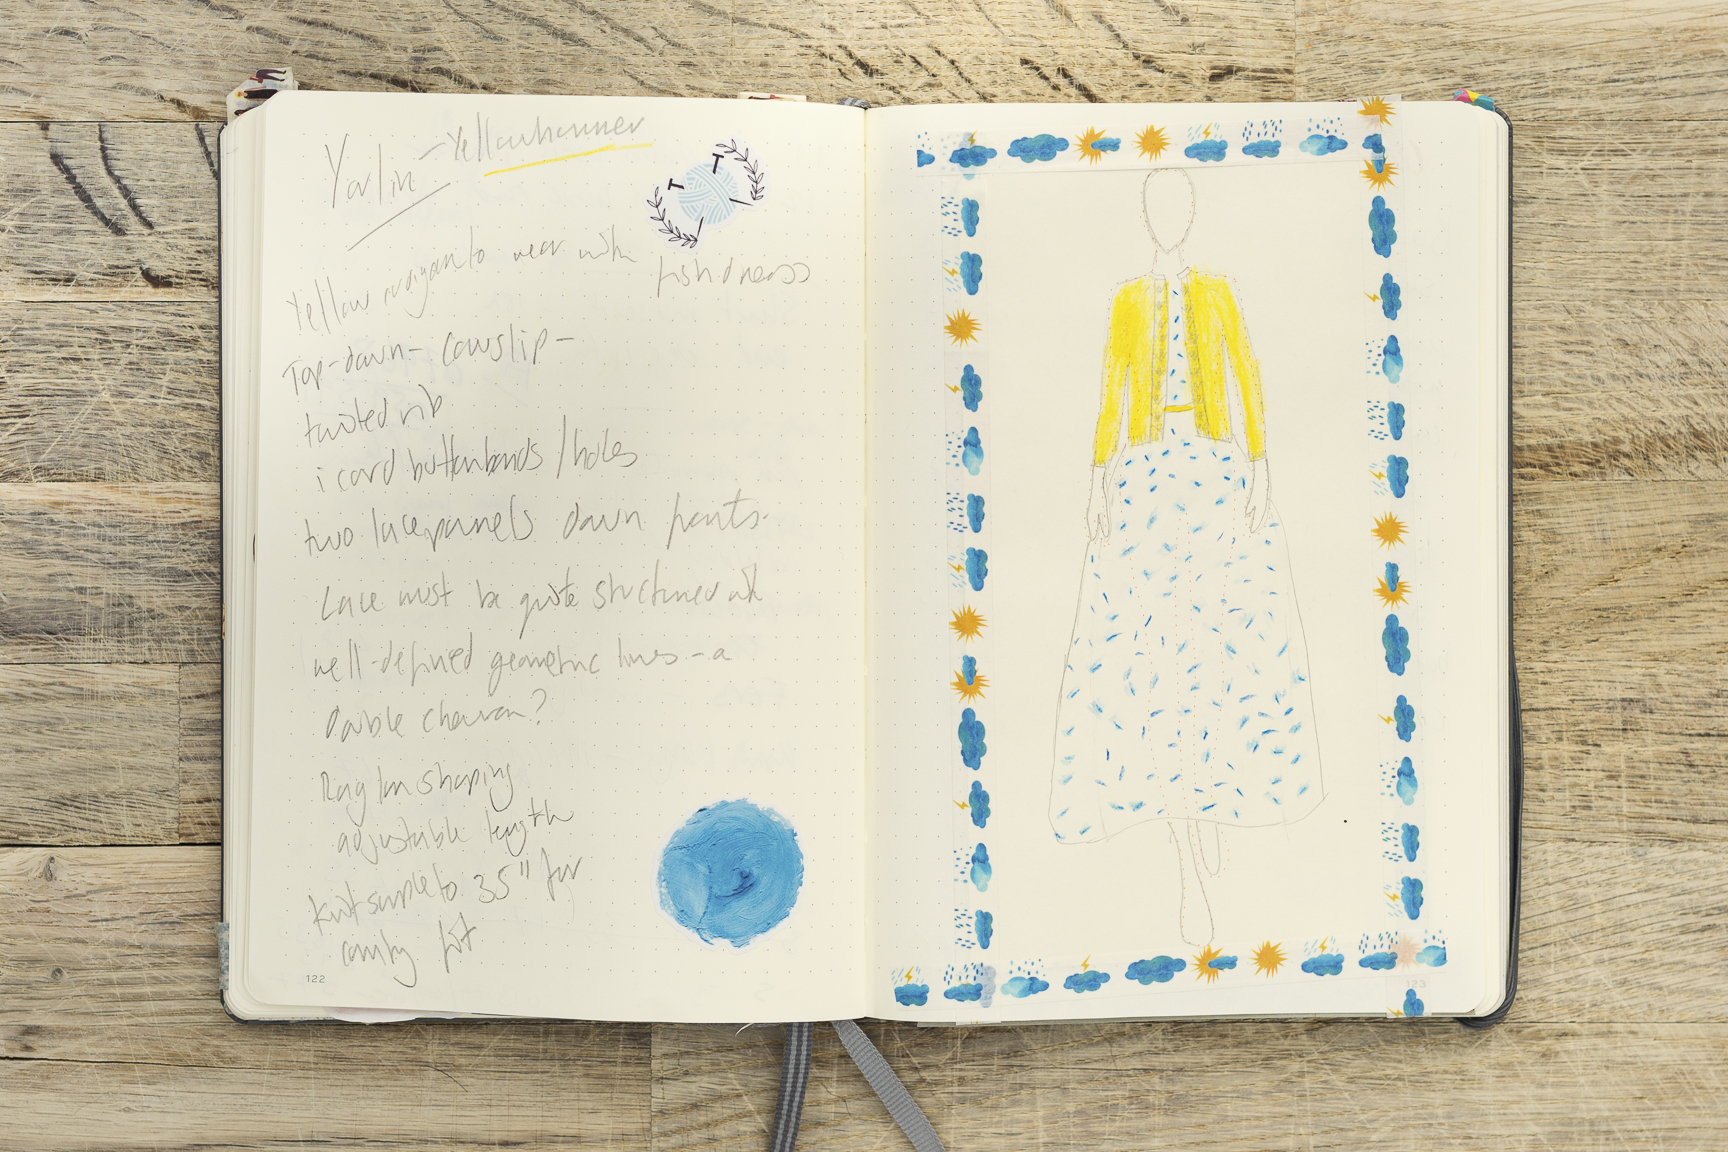 Yarlin - Yellowhammer
Yellow cardigan to wear with
fish dress
Top-down - cowslip -
twisted rib
i cord buttonbands / holes
two lace panels down fronts.
Lace must be quite structured with
well-defined geometric lines - a
double chevron?
Raglan shaping
adjustable length
Knit sample to 35" for
comfy fit
122
123